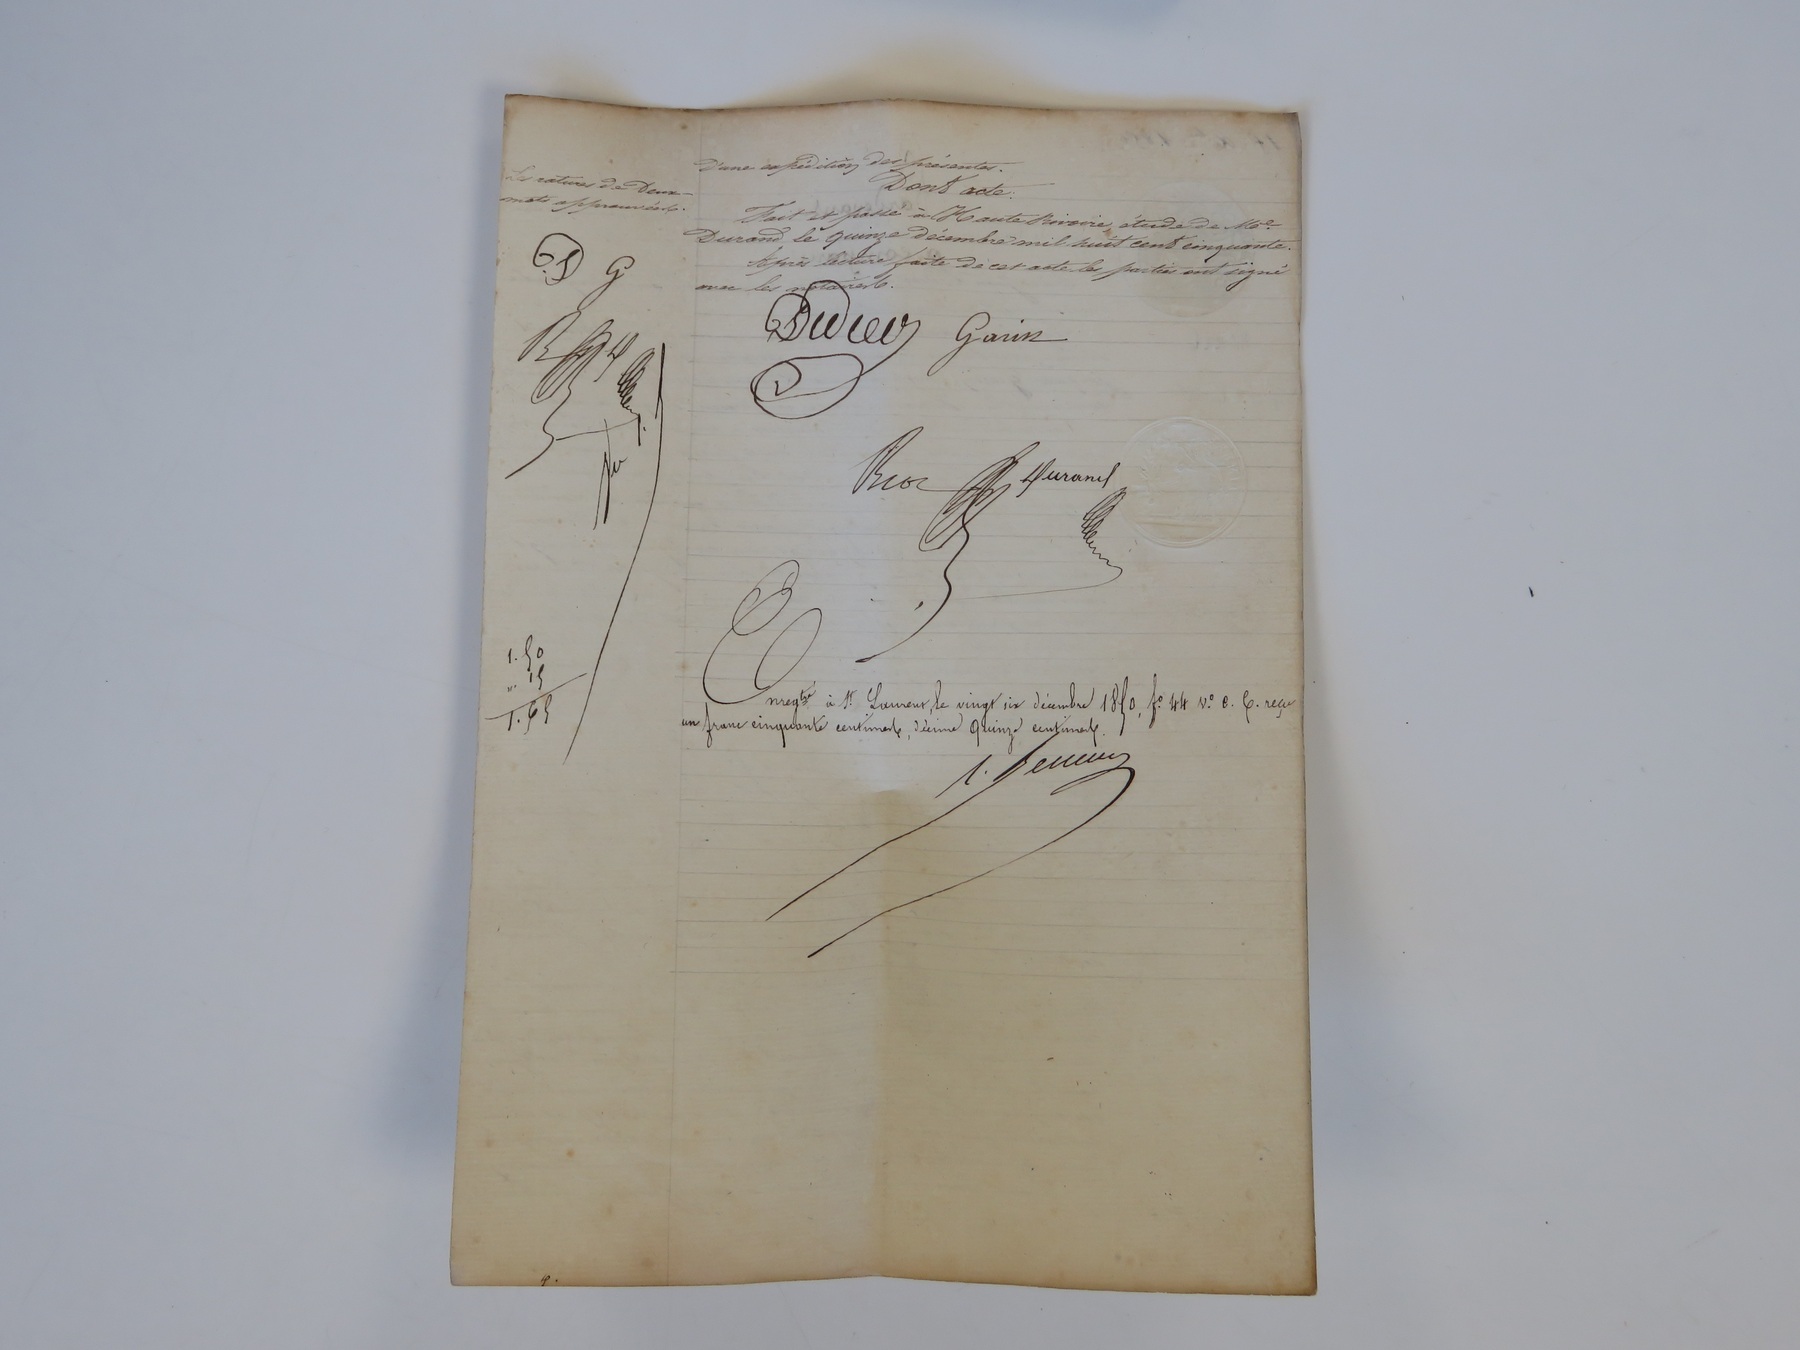 D'une expédition des présentes.
Dont acte.
Les ratures de Deux
mots approuvées.
Fait et passé à Haute Rivoire, étude de Me.
Durand le quinze décembre mil huit cent cinquante.
Après lecture faite de cet acte les parties ont signé
avec les notaires.
D G
Didier Garin
R D
Durand
1.50
". 15
1.65
Enregtré à St. Laurent, le vingt six décembre 1850, fo. 44 vo. c. 6. reçu
un franc cinquante centimes, décime quinze centimes.